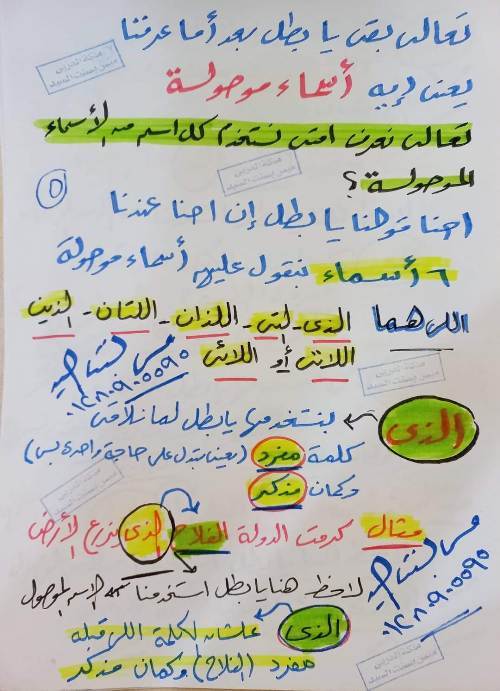 تعالى بقى يا بطل بعد أما عرفنا
يعني إيه أسماء موصولة
تعالى نعرف امتى نستخدم كل اسم من الأسماء
الموصولة ؟
٥
احنا قولنا يا بطل إن احنا عندنا
٦ أسماء بنقول عليهم أسماء موصولة
اللى هما الذى - التى - اللذان - اللتان - الذين
اللاتى أو اللائى
٠١٢٨٠٩٠٥٥٩٥
الذى بنستخدمها يا بطل لما نلاقى
كلمة مفرد (يعنى بتدل على حاجة واحدة بس)
وكمان مذكر
مثال كرمت الدولة الفلاح الذى يزرع الأرض
لاحظ هنا يا بطل استخدمنا الاسم الموصول
الذى علشان الكلمة اللى قبله
مفرد (الفلاح) وكمان مذكر
٠١٢٨٠٩٠٥٥٩٥